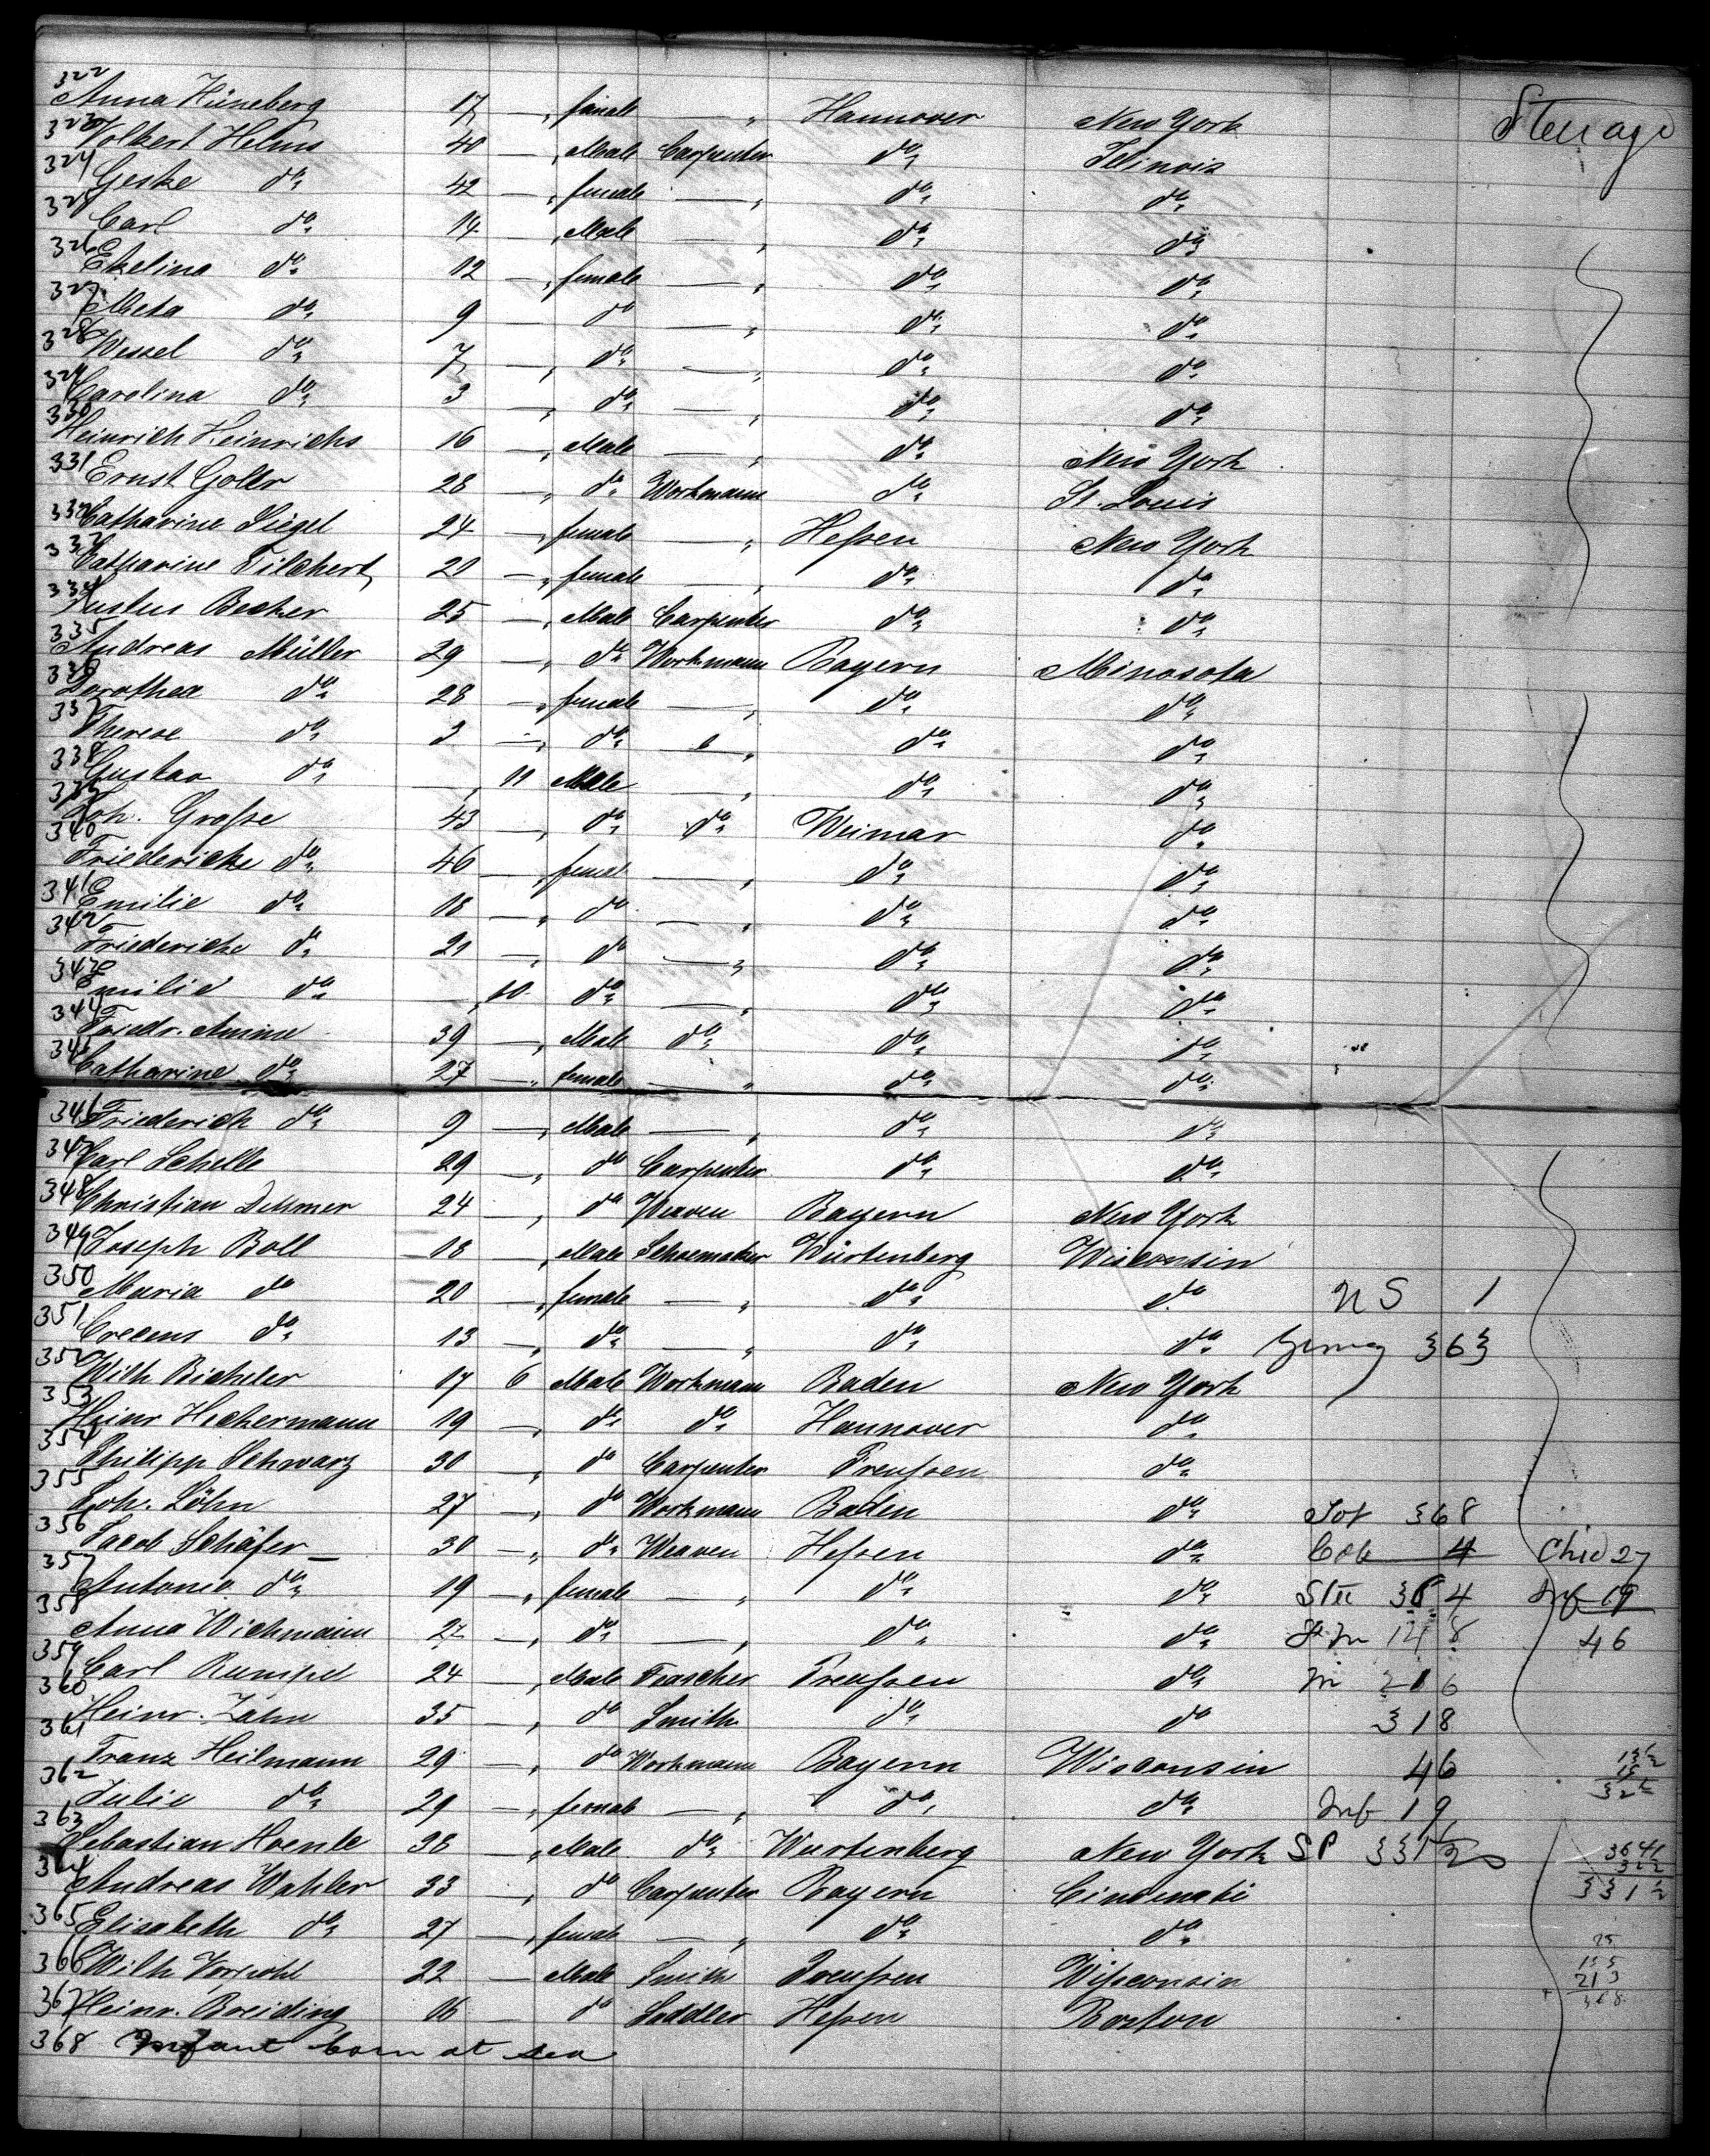 Steerage
322 Anna Hüneberg 17 —, female —, Hannover New York
323 Volkert Helms 40 —, Male Carpenter do Illinois
324 Geske do 42 —, female —, do do
325 Carl do 14 —, Male —, do do
326 Ekelina do 12 —, female —, do do
327 Meta do 9 — do —, do do
328 Wessel do 7 —, do —, do do
329 Carolina do 3 —, do —, do do
330 Heinrich Heinrichs 16 —, Male —, do New York
331 Ernst Goller 28 —, do Workmann do St. Louis
332 Catharine Siegel 24 —, female —, Heßen New York
333 Catharine Tilchert 20 —, female —, do do
334 Justus Becker 25 —, Male Carpenter do do
335 Andreas Müller 29 —, do Workmann Bayern Minosota
336 Dorothea do 28 —, female —, do do
337 Therese do 3 —, do —, do do
338 Gustav do —, 11 Male —, do do
339 Joh. Große 43 —, do do Weimar do
340 Friedericke do 46 —, femal —, do do
341 Emilie do 18 —, do —, do do
342 Friedericke do 21 —, do —, do do
343 Emilie do —, 10 do —, do do
344 Friedr. 39 —, Male do do do
345 Catharine do 27 —, female —, do do
346 Friederich do 9 —, Male —, do do
347 Carl Schelle 29 —, do Carpenter do do
348 Christian Dellmer 24 —, do Weaven Bayern New York
349 Joseph Boll 18 —, Male Schoemaker Würtenberg Wisconsin
350 Maria do 20 —, female —, do do U S 1
351 Crecens do 13 —, do —, do do Germy 363
352 Wilh Bicheler 17 6 Male Workmann Baden New York
353 Heinr Heckermann 19 —, do do Hannover do
354 Philipp Schwarz 30 —, do Carpenter Preußen do
355 Joh. Löhn 27 —, do Workmann Baden do Tot 368
356 Jacob Schäfer 30 —, do Weaven Heßen do Cab 4 Chil 27
357 Antonie do 19 —, female —, do do Ste 364 Inf 19
358 Anna Wichmann 27 —, do —, do do 148 46
359 Carl Rumpel 24 —, Male Preußen do m 216
360 Heinr. Zahn 35 —, do Smith do do 318
361 Franz Heilmann 29 —, do Workmann Bayern Wisconsin 46
362 Julie do 29 —, female —, do do Inf 19
363 Sebastian Haenle 38 —, Male do Wurtenberg New York SP 331 1/2
364 Andreas Wahler 33 —, do Carpenter Bayern Cincinati 331 1/2
365 Elisabeth do 27 —, female —, do do
366 Wilh 22 — Male Smith Preußen Wißconsin
367 Heinr. Breiding 16 — do Saddler Heßen Boston
368 Infant born at sea